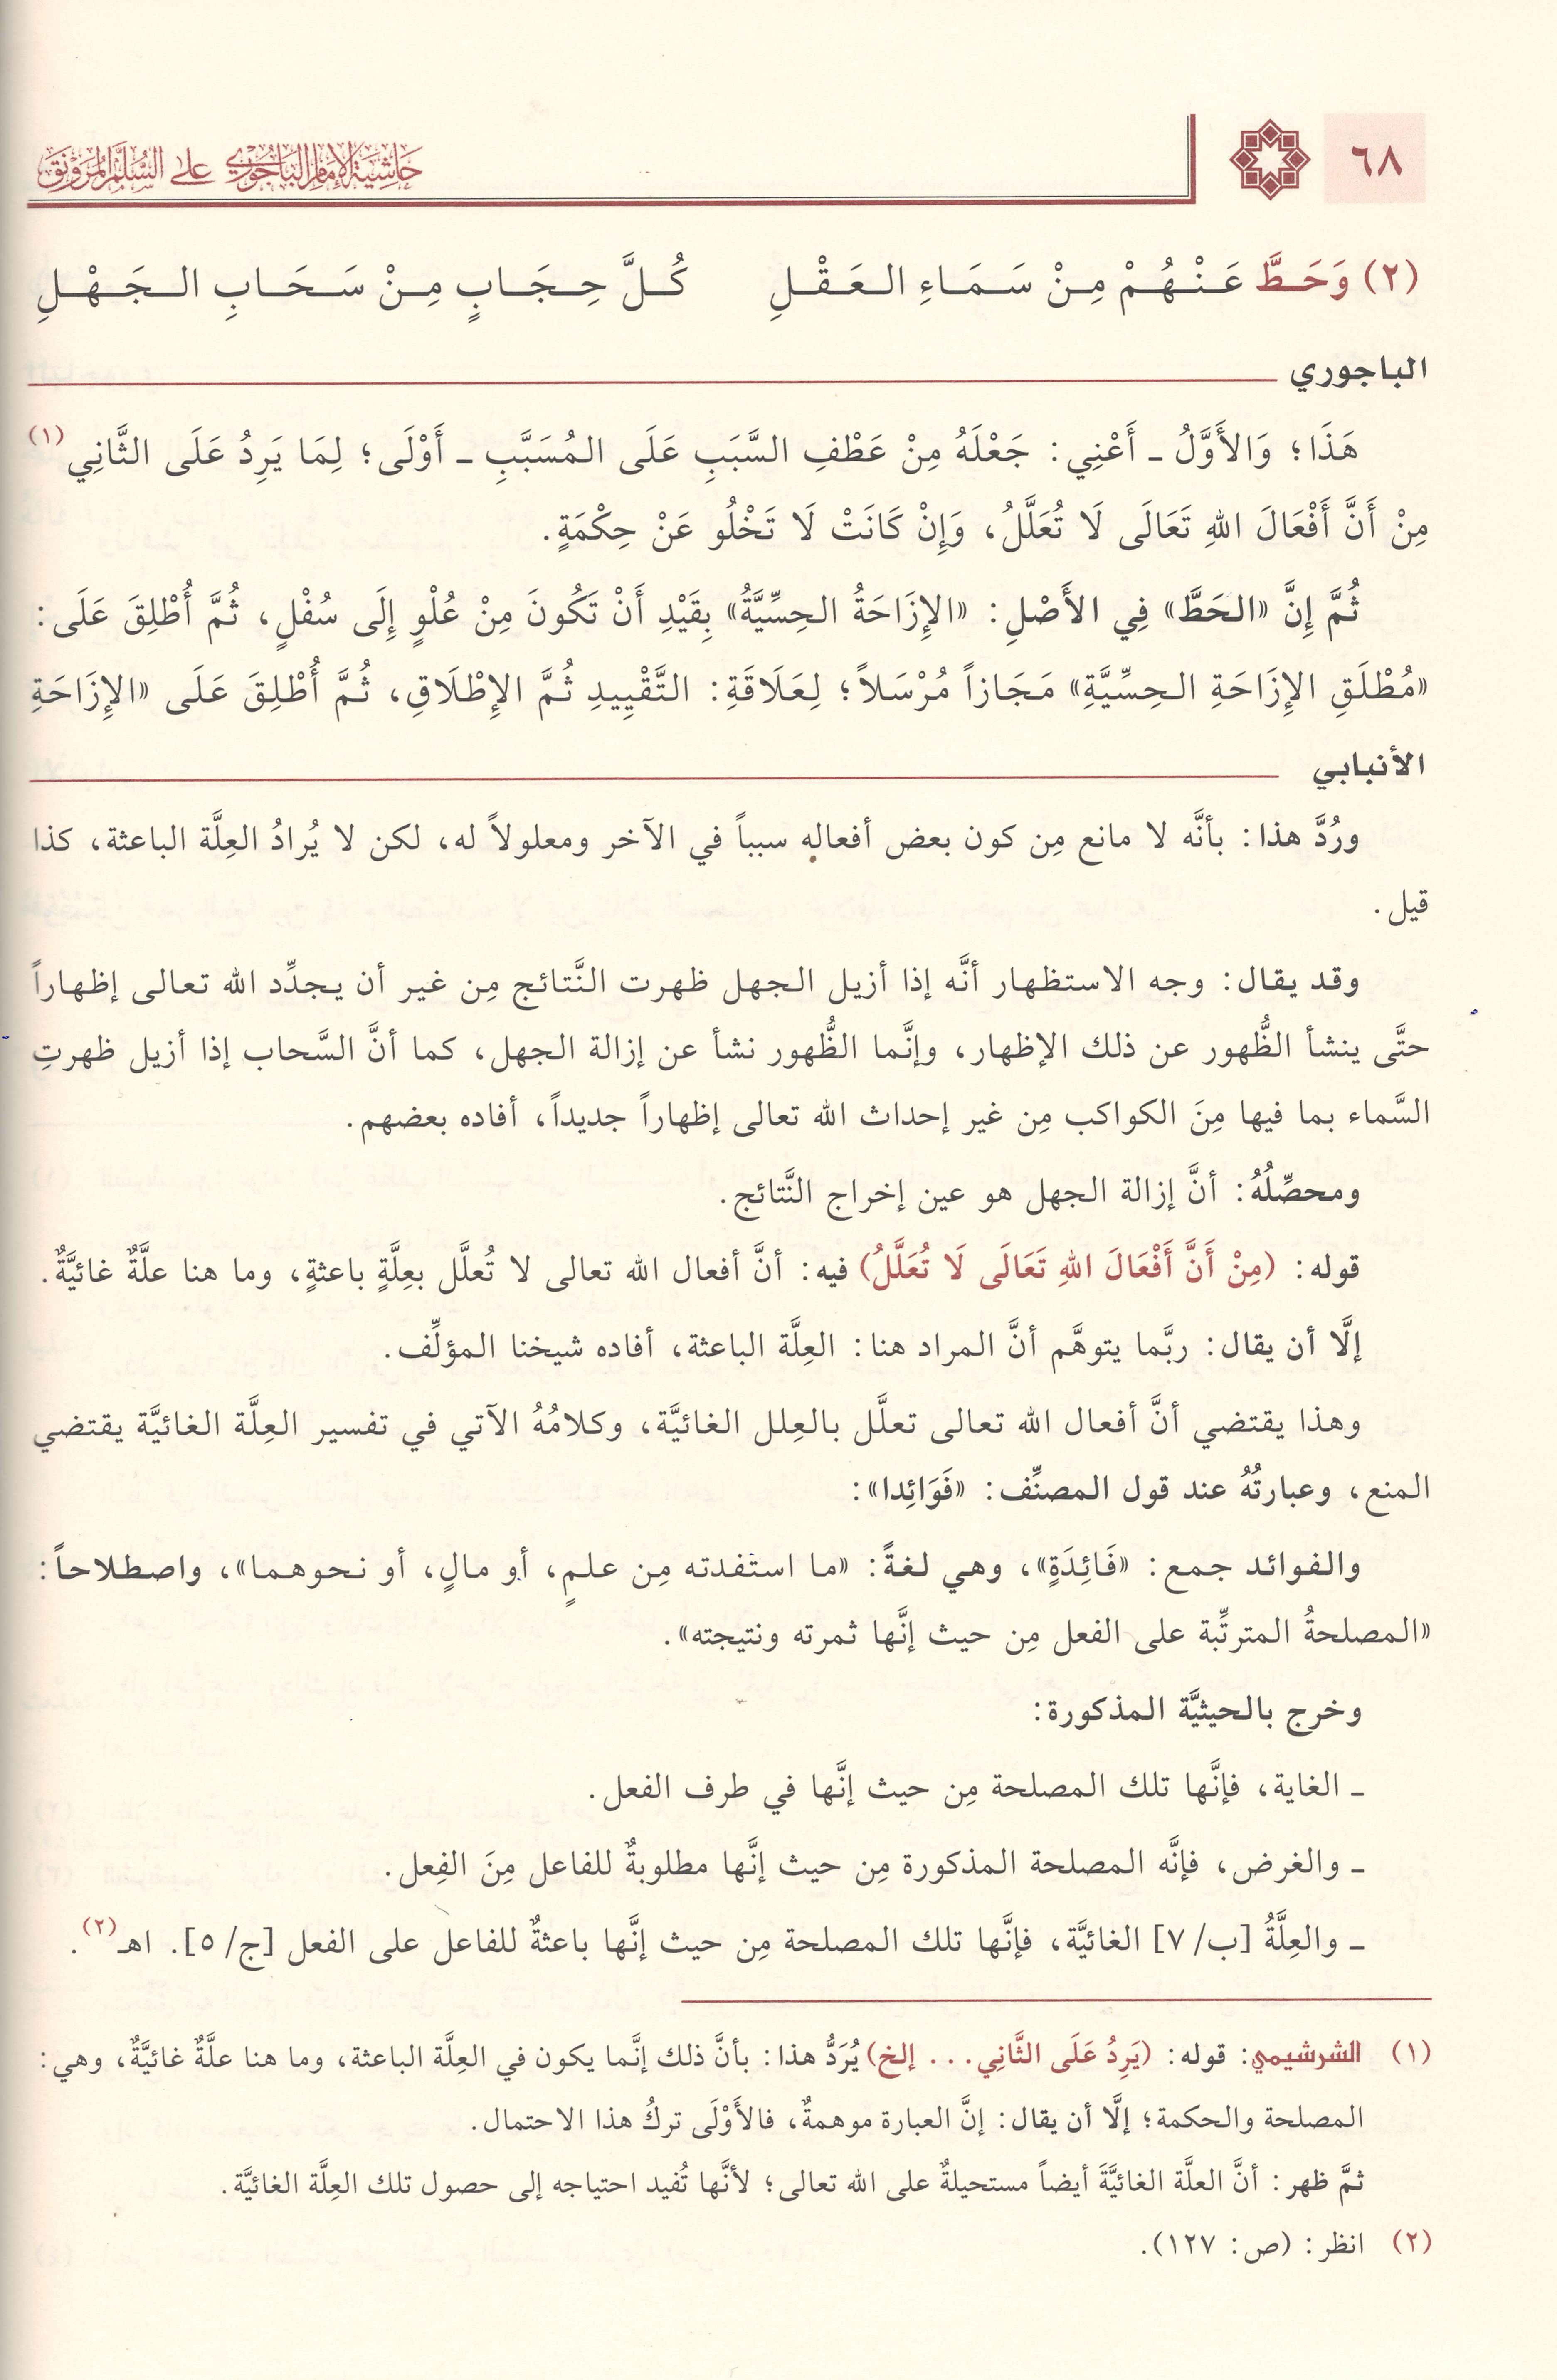 ٦٨
حاشية الإمام الباجوري على السلم المرونق
(٢) وَحَطَّ عَنْهُمْ مِنْ سَمَاءِ العَقْلِ كُلَّ حِجَابٍ مِنْ سَحَابِ الجَهْلِ
الباجوري
هَذَا؛ وَالأَوَّلُ ـ أَعْنِي: جَعْلَهُ مِنْ عَطْفِ السَّبَبِ عَلَى المُسَبَّبِ ـ أَوْلَى؛ لِمَا يَرِدُ عَلَى الثَّانِي (١)
مِنْ أَنَّ أَفْعَالَ اللهِ تَعَالَى لَا تُعَلَّلُ، وَإِنْ كَانَتْ لَا تَخْلُو عَنْ حِكْمَةٍ.
ثُمَّ إِنَّ «الحَطَّ» فِي الأَصْلِ: «الإِزَاحَةُ الحِسِّيَّةُ» بِقَيْدِ أَنْ تَكُونَ مِنْ عُلْوٍ إِلَى سُفْلٍ، ثُمَّ أُطْلِقَ عَلَى:
«مُطْلَقِ الإِزَاحَةِ الحِسِّيَّةِ» مَجَازاً مُرْسَلاً؛ لِعَلَاقَةِ: التَّقْيِيدِ ثُمَّ الإِطْلَاقِ، ثُمَّ أُطْلِقَ عَلَى «الإِزَاحَةِ
الأنبابي
ورُدَّ هذا: بأنَّه لا مانع مِن كون بعض أفعاله سبباً في الآخر ومعلولاً له، لكن لا يُرادُ العِلَّة الباعثة، كذا
قيل.
وقد يقال: وجه الاستظهار أنَّه إذا أزيل الجهل ظهرت النَّتائج مِن غير أن يجدِّد الله تعالى إظهاراً
حتَّى ينشأ الظُّهور عن ذلك الإظهار، وإنَّما الظُّهور نشأ عن إزالة الجهل، كما أنَّ السَّحاب إذا أزيل ظهرتِ
السَّماء بما فيها مِنَ الكواكب مِن غير إحداث الله تعالى إظهاراً جديداً، أفاده بعضهم.
ومحصِّلُهُ: أنَّ إزالة الجهل هو عين إخراج النَّتائج.
قوله: (مِنْ أَنَّ أَفْعَالَ اللهِ تَعَالَى لَا تُعَلَّلُ) فيه: أنَّ أفعال الله تعالى لا تُعلَّل بعِلَّةٍ باعثةٍ، وما هنا علَّةٌ غائيَّةٌ.
إلَّا أن يقال: ربَّما يتوهَّم أنَّ المراد هنا: العِلَّة الباعثة، أفاده شيخنا المؤلِّف.
وهذا يقتضي أنَّ أفعال الله تعالى تعلَّل بالعِلل الغائيَّة، وكلامُهُ الآتي في تفسير العِلَّة الغائيَّة يقتضي
المنع، وعبارتُهُ عند قول المصنِّف: «فَوَائِدا»:
والفوائد جمع: «فَائِدَةٍ»، وهي لغةً: «ما استفدته مِن علمٍ، أو مالٍ، أو نحوهما»، واصطلاحاً:
«المصلحةُ المترتِّبة على الفعل مِن حيث إنَّها ثمرته ونتيجته».
وخرج بالحيثيَّة المذكورة:
ـ الغاية، فإنَّها تلك المصلحة مِن حيث إنَّها في طرف الفعل.
ـ والغرض، فإنَّه المصلحة المذكورة مِن حيث إنَّها مطلوبةٌ للفاعل مِنَ الفِعل.
ـ والعِلَّةُ [ب/ ٧] الغائيَّة، فإنَّها تلك المصلحة مِن حيث إنَّها باعثةٌ للفاعل على الفعل [ج/ ٥]. اهـ(٢).
(١) الشرشيمي: قوله: (يَرِدُ عَلَى الثَّانِي... إلخ) يُرَدُّ هذا: بأنَّ ذلك إنَّما يكون في العِلَّة الباعثة، وما هنا علَّةٌ غائيَّةٌ، وهي:
المصلحة والحكمة؛ إلَّا أن يقال: إنَّ العبارة موهمةٌ، فالأَوْلَى تركُ هذا الاحتمال.
ثمَّ ظهر: أنَّ العلَّة الغائيَّةَ أيضاً مستحيلةٌ على الله تعالى؛ لأنَّها تُفيد احتياجه إلى حصول تلك العِلَّة الغائيَّة.
(٢) انظر: (ص: ١٢٧).